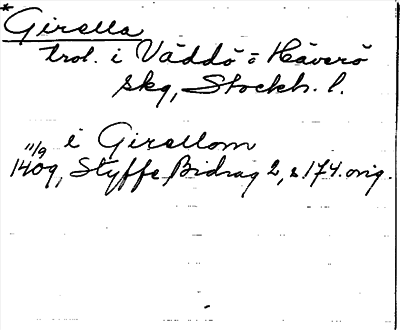 * Girslla
trol. i Väddö o Häverö
skg, Stockh. l.
i Girsllom
11/9
1409, Styffe Bidrag 2, s 174. orig.